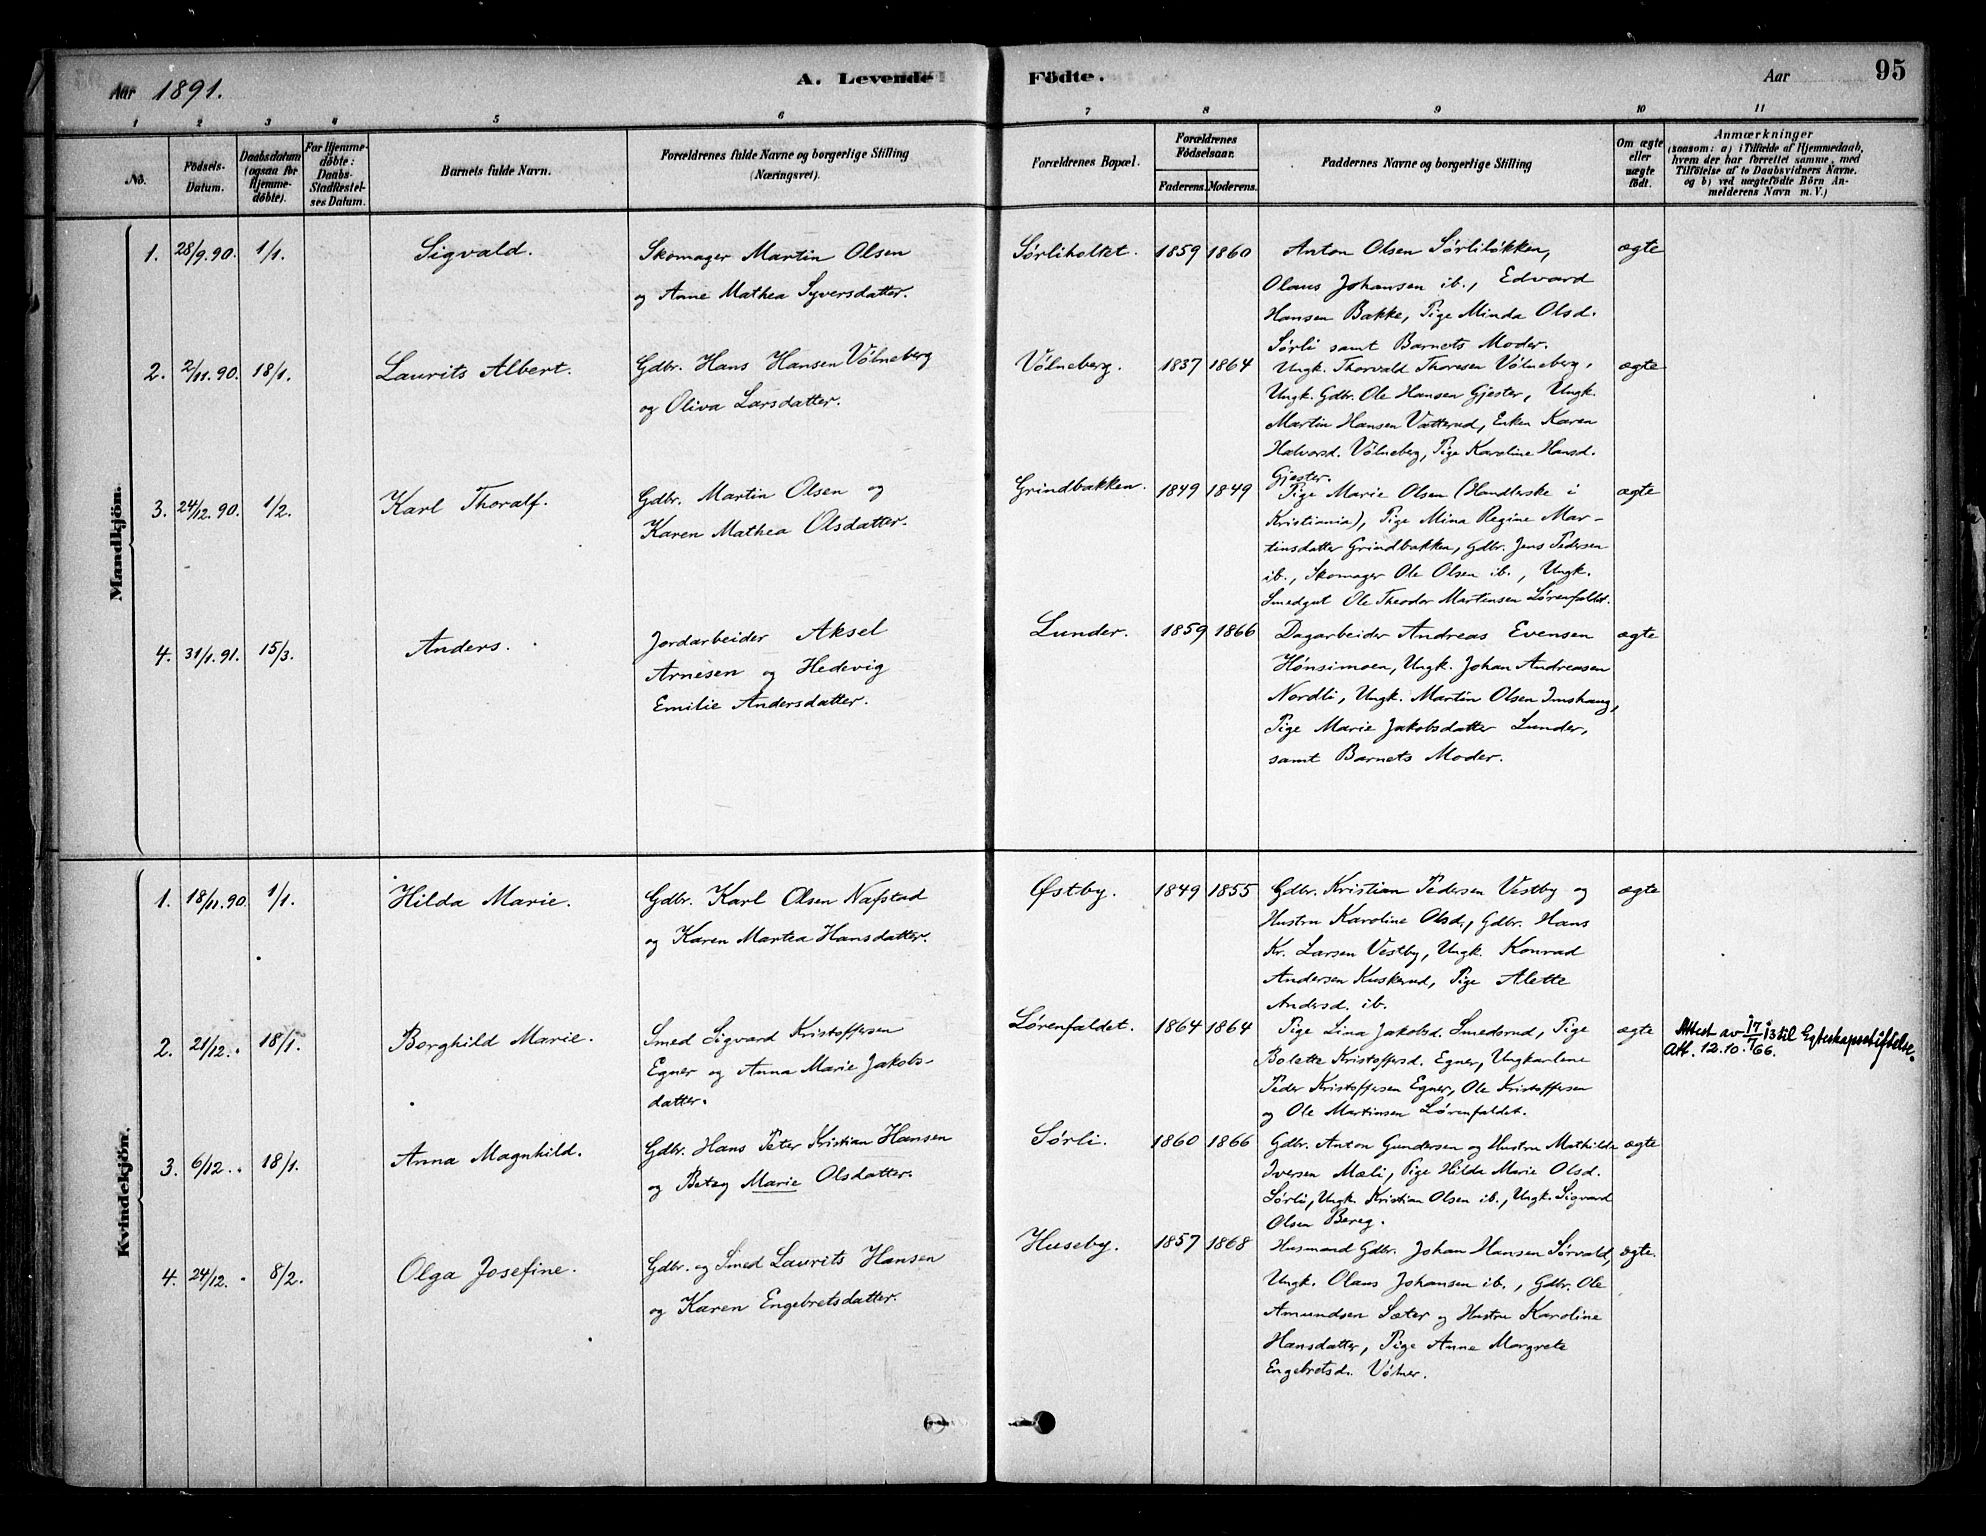 Aar 1891.
A. Levende
Födte.
Aar
95
1 2 3 4 5 6 7 8 9 10 11
No.
Födsels-
Datum.
Daabsdatum
(ogsaa for
Hjemme-
döbte).
For Hjemme-
döbte:
Daabs-
Stadfæstel-
ses Datum.
Barnets fulde Navn.
Forældrenes fulde Navne og borgerlige Stilling
(Næringsvei).
Forældrenes Bopæl.
Forældrenes
Födselsaar.
Faderens. Moderens.
Faddernes Navne og borgerlige Stilling
Om ægte
eller
uægte
födt.
Anmærkninger
(saasom: a) i Tilfælde af Hjemmedaab,
hvem der har forrettet samme, med
Tilföielse af to Daabsvidners Navne.
og b) ved uægtefödte Börn An-
melderens Navn m. V.)
Mandkjön.
1. 28/9.90. 1/1. Sigvald.
Skomager Martin Olsen
og Anne Mathea Syversdatter.
Sørliholtet. 1859 1860
Anton Olsen Sørliløkken,
Olaus Johansen ib., Edvard
Hansen Bakke, Pige Minda Olsd.
Sørli samt Barnets Moder.
ægte
2. 2/11.90. 18/1. Laurits Albert.
Gdbr. Hans Hansen Vølneberg
og Oliva Larsdatter.
Vølneberg. 1837 1864
Ungk. Thorvald Thoresen Vølneberg,
Ungk. Gdbr. Ole Hansen Gjester, Ungk.
Martin Hansen Vatterud, Enken Karen
Halvorsd. Vølneberg, Pige Karoline Hansd.
Gjester.
ægte
3. 24/12.90. 1/2. Karl Thoralf.
Gdbr. Martin Olsen og
Karen Mathea Olsdatter.
Grindbakken. 1849 1849
Pige Marie Olsen (Handlerske i
Kristiania), Pige Mina Regine Mar-
tinsdatter Grindbakken, Gdbr. Jens Pedersen
ib., Skomager Ole Olsen ib., Ungk.
Smedgut Ole Theodor Martinsen Lørenfaldet.
ægte
4. 31/1.91. 15/3. Anders.
Jordarbeider Aksel
Arnesen og Hedevig
Emilie Andersdatter.
Lunder. 1859 1866
Dagarbeider Andreas Evensen
Hønsimoen, Ungk. Johan Andreasen
Nordli, Ungk. Martin Olsen Inushaug,
Pige Marie Jakobsdatter Lunder,
samt Barnets Moder.
ægte
Kvindekjön.
1. 18/11.90. 1/1. Hilda Marie.
Gdbr. Karl Olsen Nafstad
og Karen Martea Hansdatter.
Østby. 1849 1855
Gdbr. Kristian Pedersen Vestby og
Hustru Karoline Olsd., Gdbr. Hans
Kr. Larsen Vestby, Ungk. Konrad
Andersen Kuskerud, Pige Alette
Andersd. ib.
ægte
2. 21/12. 18/1. Borghild Marie.
Smed Sigvard Kristoffersen
Egner og Anna Marie Jakobs-
datter.
Lørenfaldet. 1864 1864
Pige Lina Jakobsd. Smedsrud, Pige
Bolette Kristoffersd. Egner, Ungkarlene
Peder Kristoffersen Egner, Ole Kristoffersen
og Ole Martinsen Lørenfaldet.
ægte
Attest av 17/7 13 til Egteskapsstiftelse.
Att. 12.10.66.
3. 6/12. 18/1. Anna Magnhild.
Gdbr. Hans Peter Kristian Hansen
og Betzy Marie Olsdatter.
Sørli. 1860 1866
Gdbr. Anton Gundersen og Hustru Mathilde
Iversen Mæli, Pige Hilda Marie Olsd.
Sørli, Ungk. Kristian Olsen ib., Ungk. Sigvard
Olsen Bereg.
ægte
4. 24/12. 8/2. Olga Josefine.
Gdbr. og Smed Laurits Hansen
og Karen Engebretsdatter.
Huseby. 1857 1868
Husmand Gdbr. Johan Hansen Sørvald,
Ungk. Olaus Johansen ib., Gdbr. Ole
Amundsen Sæter og Hustru Karoline
Hansdatter, Pige Anne Margrete
Engebretsd. Vølner.
ægte.